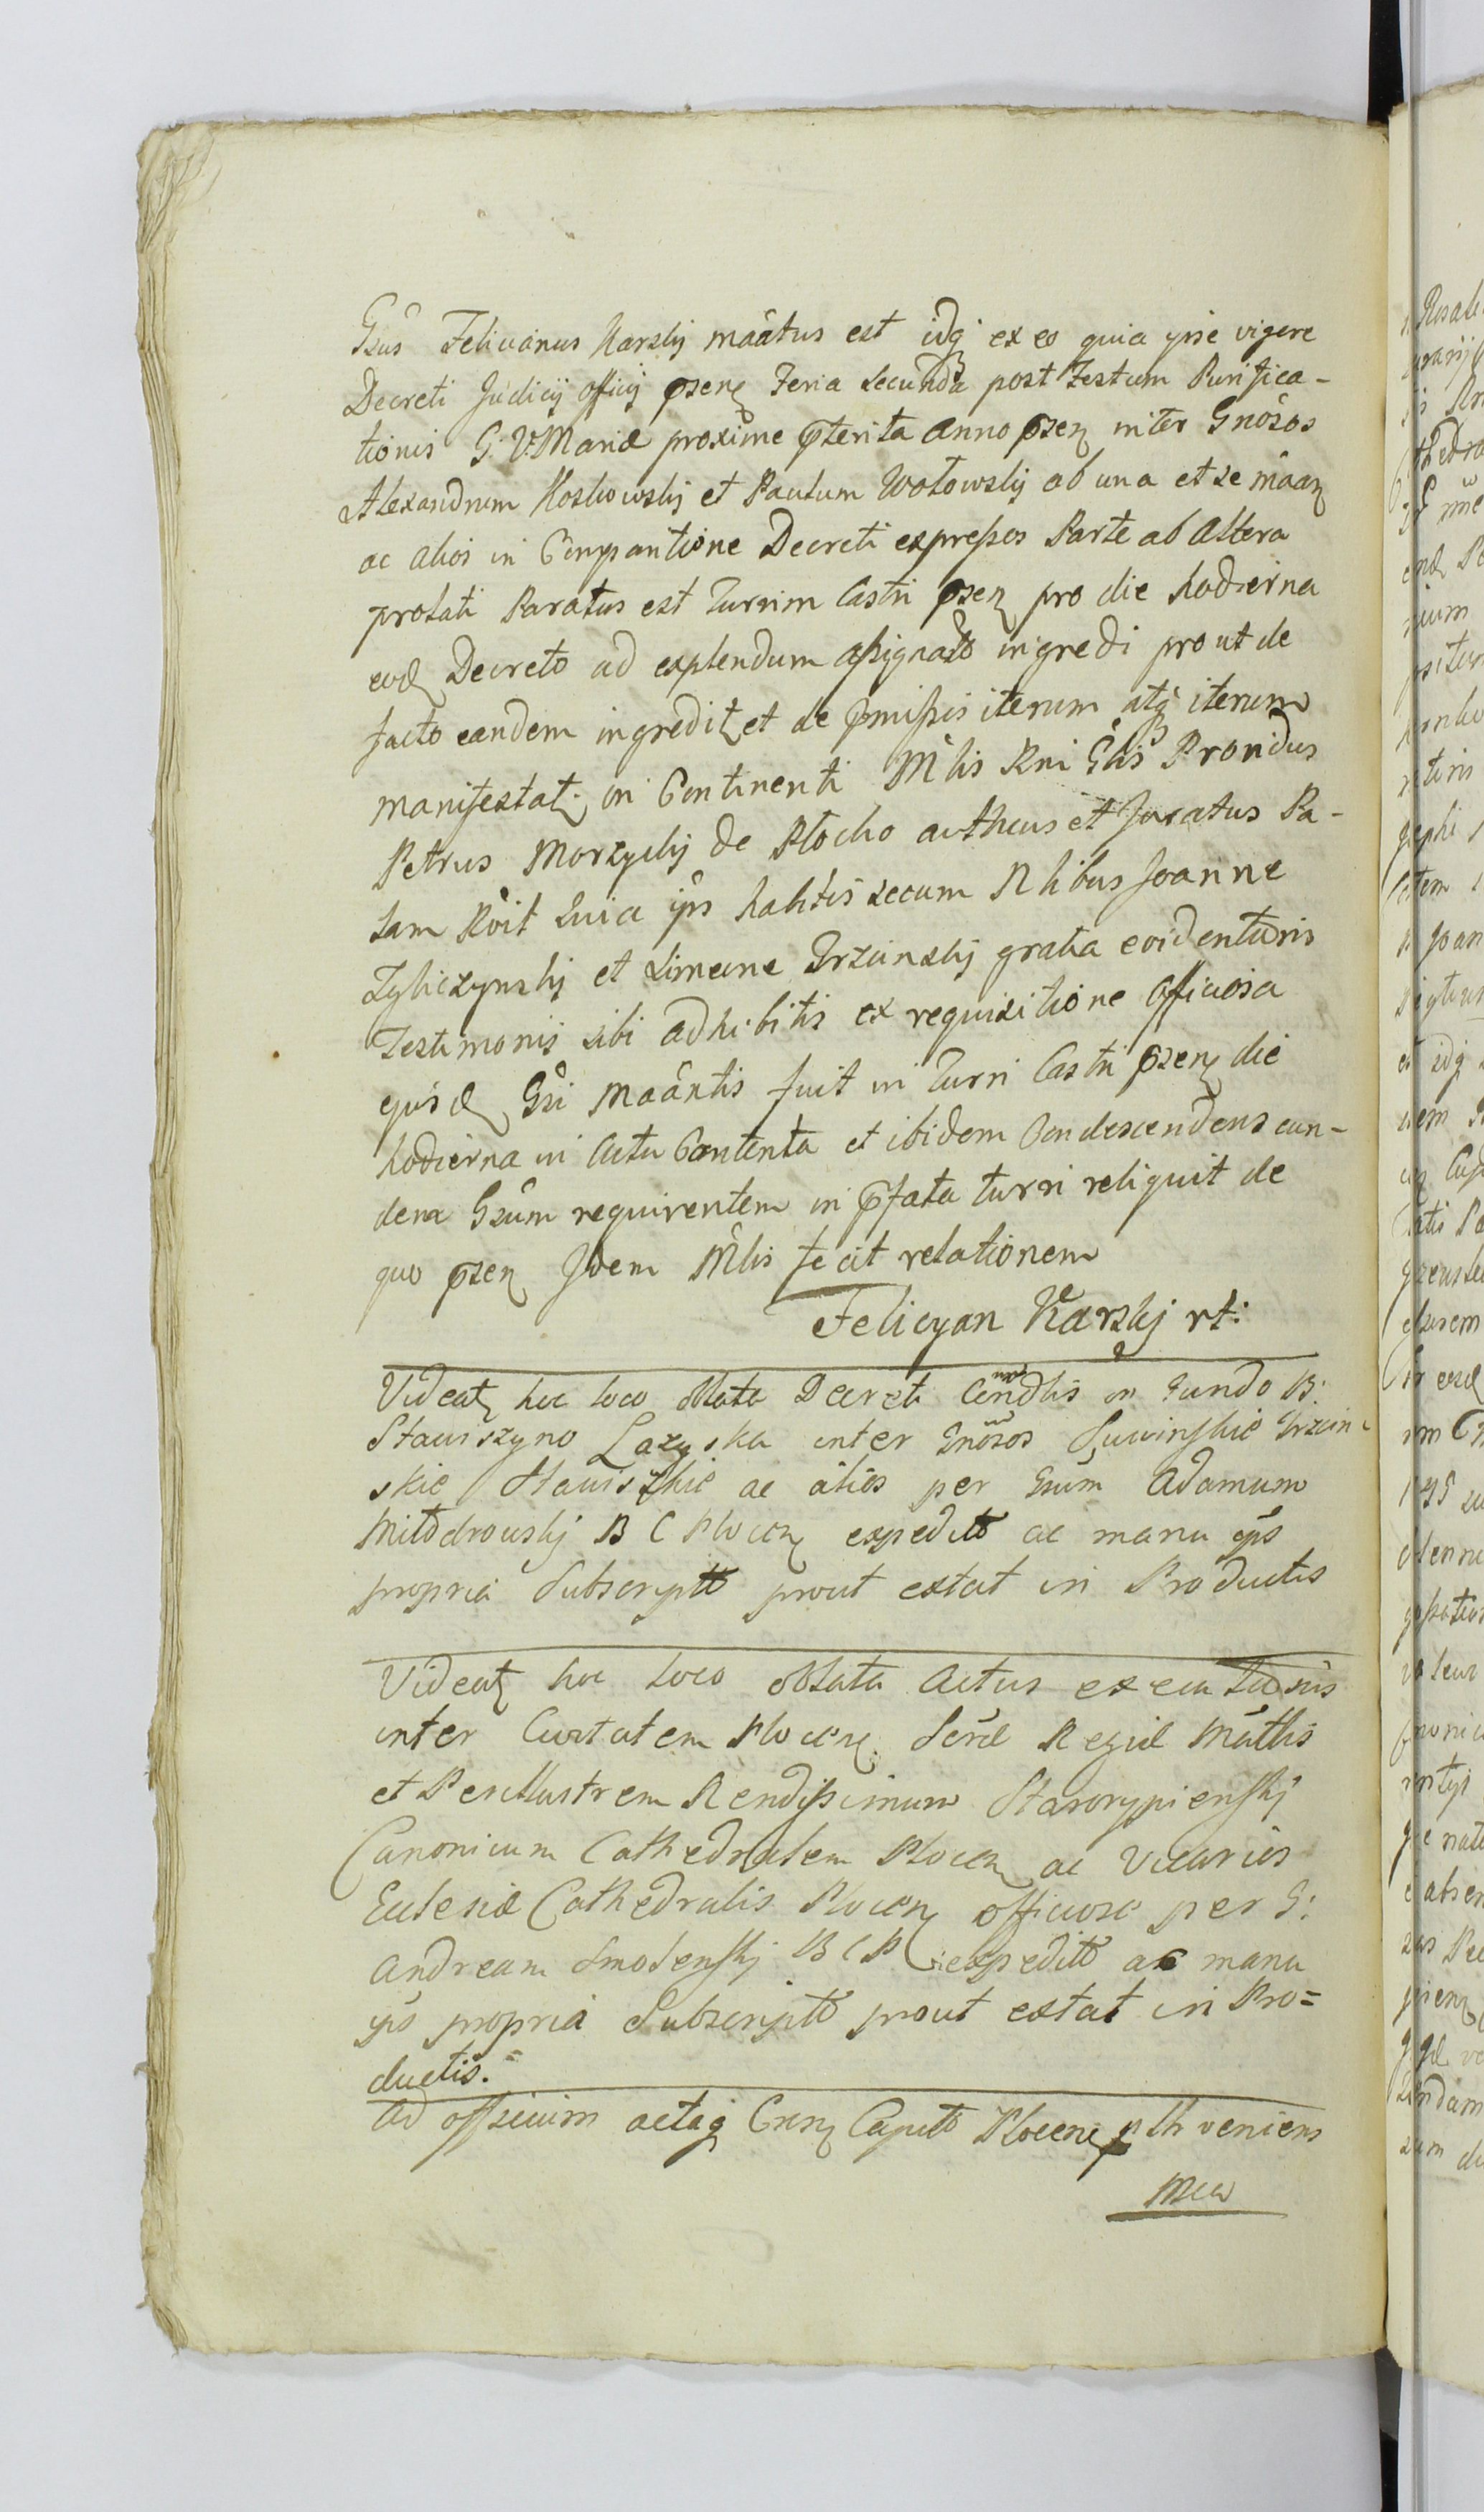 Gsus Felicianus Karskij mãatus est idq ex eo quia ipse vigere
Decreti Judicij officij pserż Feria Secunda post Festum Purifica-
tionis G: V: Mariæ proxime pterita Anno pserż inter Gnosos
Alexandrum Koskowskij et Paulum Wołowskij ab una et se mãarż
ac alios in Compantione Decreti expressos Parte ab Altera
prolati Paratus est Turrim Castri pserż pro die hodierna
eodż Decreto ad explendum assignato ingredi prout de
facto eandem ingreditż et de pmissis iterum atq iterum
manifestat: in Continenti Mlis Rni Glis Providus
Petrus Morzyckij de Płocko authcus et Juratus Pa-
lam Róit Quia ips habitis secum Nlibus Joanne
Zyliczynskij et Simeone Trzcinskij gratia evidentioris
Testimonij sibi adhibitis ex requisitione Officiosa
ejusdż Gsi Maãntis fuit in Turri Castri pserż die
hodierna in Actu Contenta et ibidem Condescendens eun-
dem Gsum requirentem in pfata turri reliquit de
quo pserż Idem Mlis fecit relationem
Felicyan Karskij rt:
Videatż hoc loco oblata Decreti Condlis in Fundo B:
Stawiszyno Łazyska inter Gnosos Suwinskie Trzcin-
skie Stawiskie ac alios per Gsum Adamum
Miłodrowskij B C Plocerż expedito ac manu ips
propria Subscripto prout extat in Productis
Videatż hoc loco oblata Actus executionis
inter Civitatem Plocerż Seræ Regiæ Mattis
et Perillustrem Rendissimum Starorypienskij
Canonicum Cathedralem Plocerż ac Vicarios
Eclesiæ Cathedralis Plocerż officiose per G:
Andream Smolenskij B C P expedito ac manu
ips propria Subscripto prout extat in Pro=
ductis.
Ad officium actaq Crsż Capitt Plocerż plr veniens